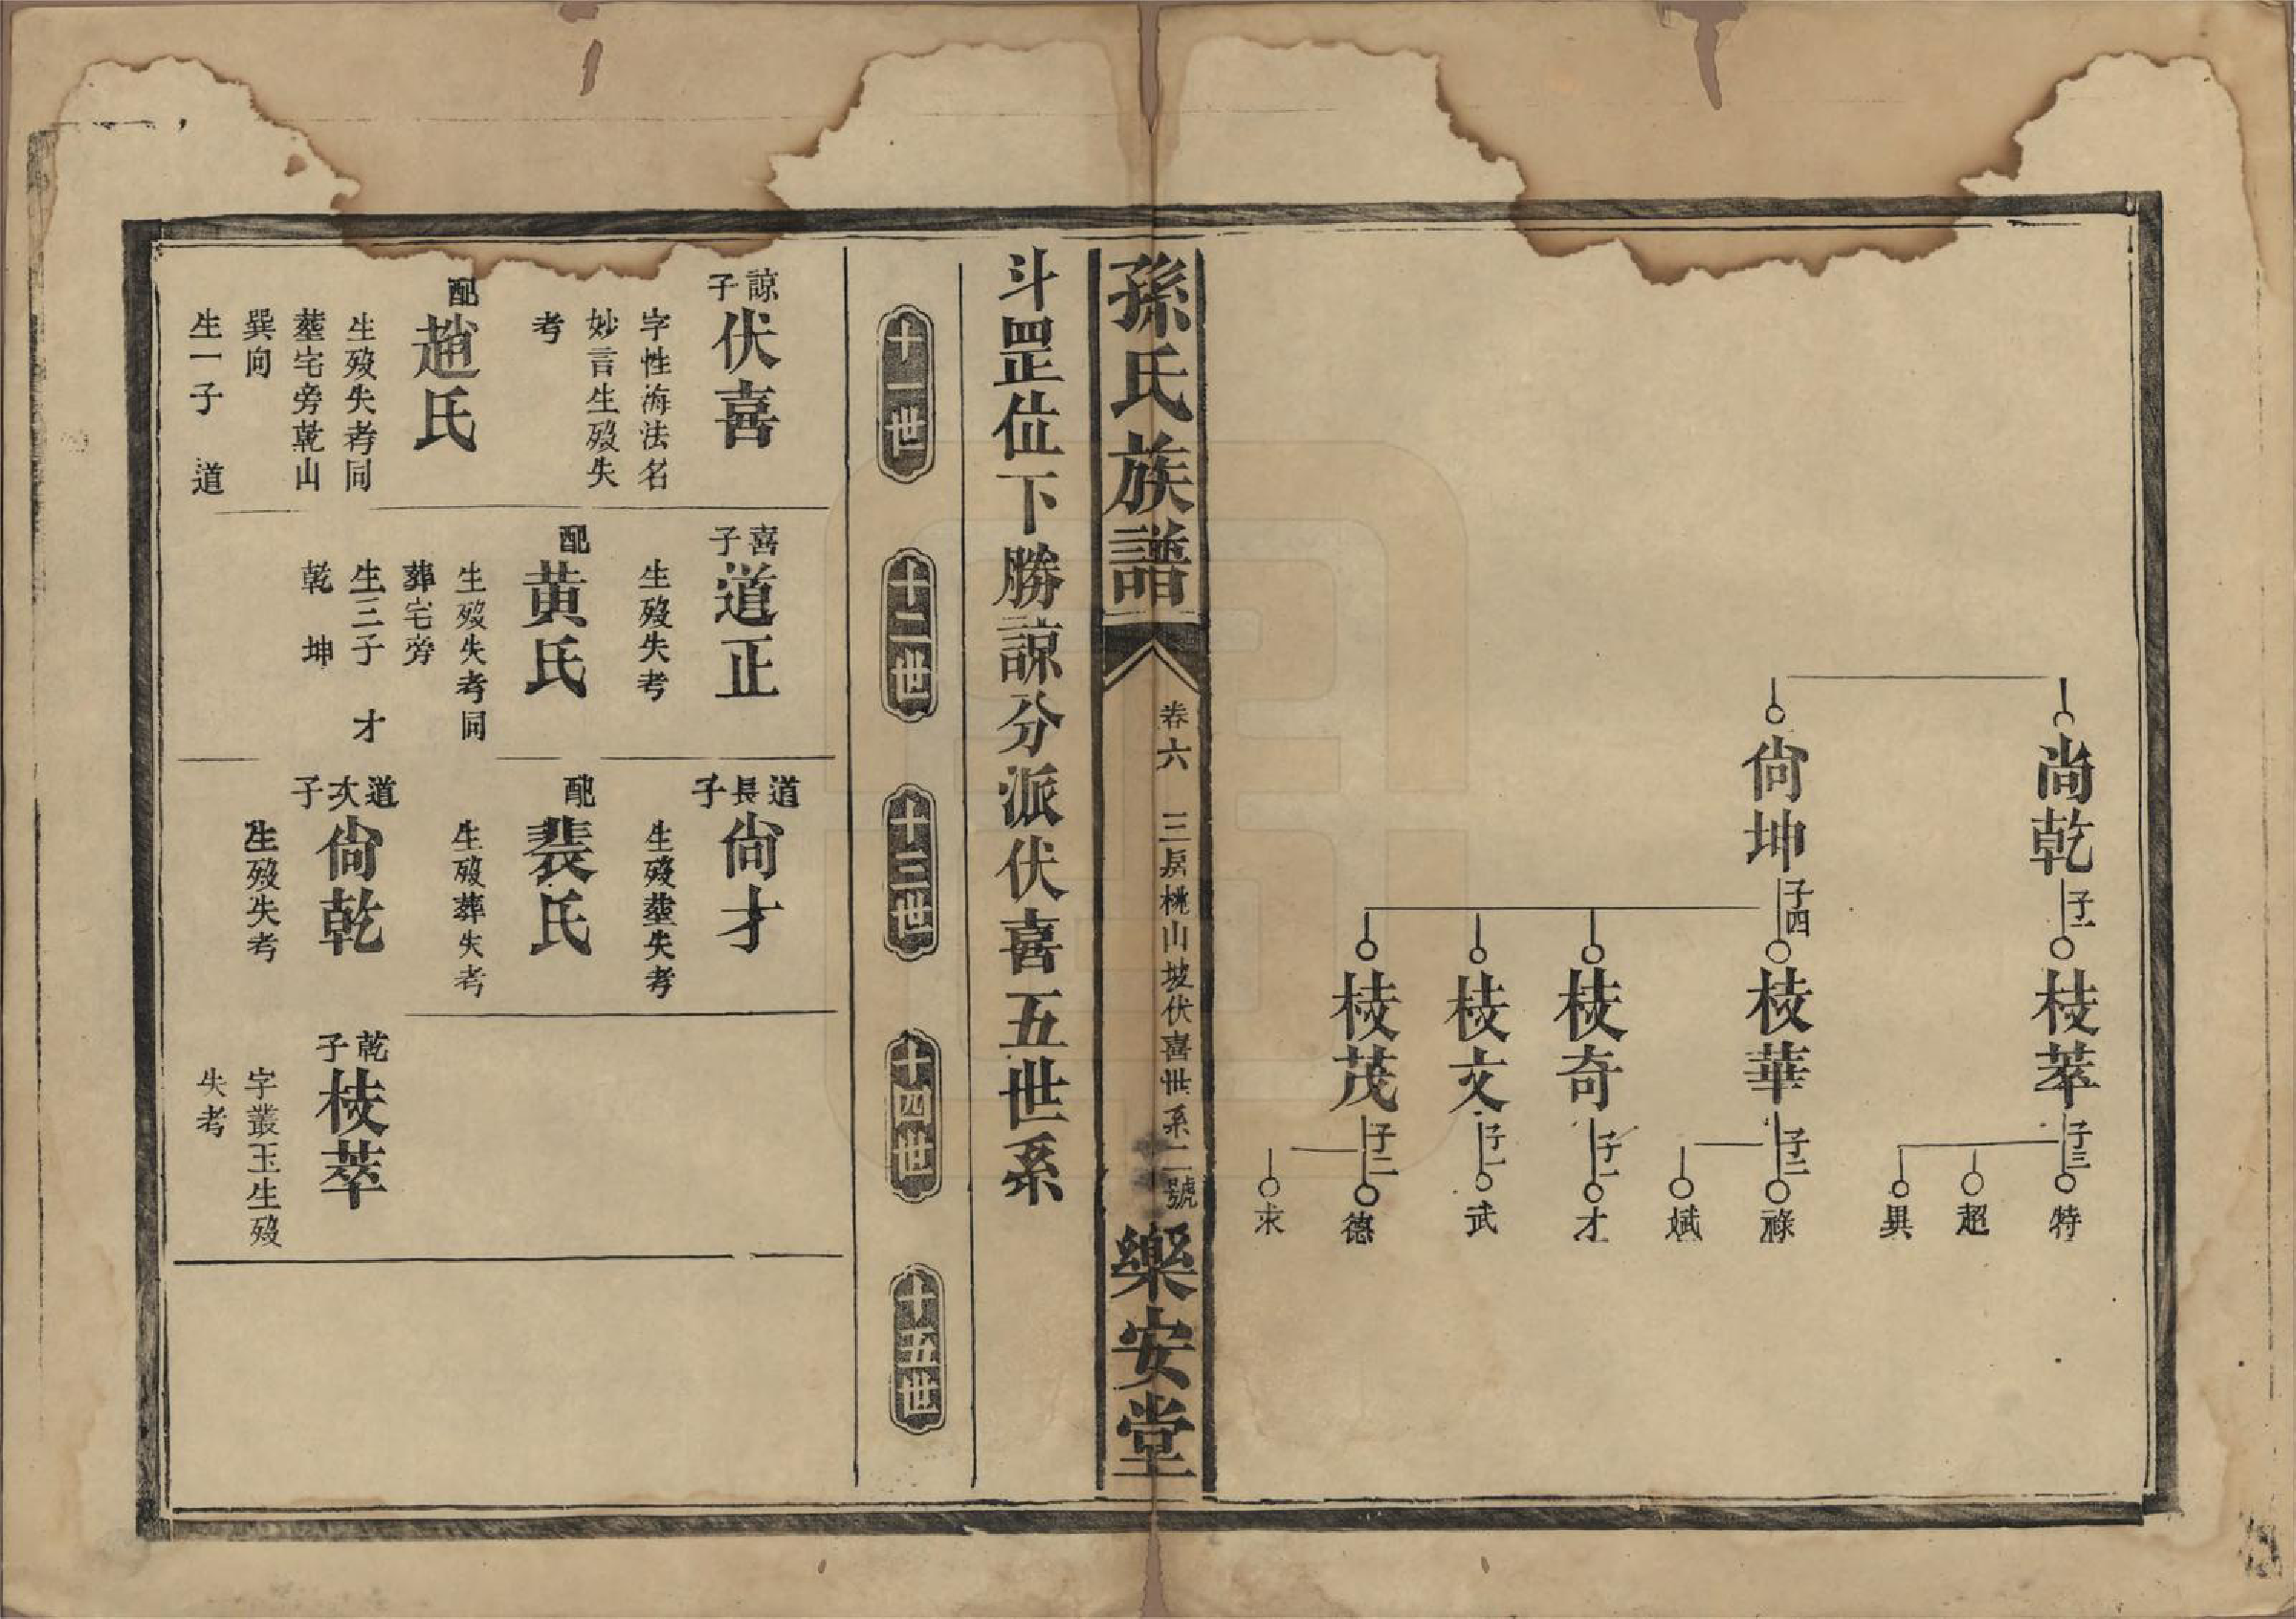 尚乾
子一
枝萃
子三
特
超
異
尙坤
子四
枝華
子二
祿
斌
枝奇
子一
才
枝文
子一
武
枝茂
子二
德
求
孫氏族譜
卷六 三房桃山坡伏喜世系二號
樂安堂
斗罡位下勝諒分派伏喜五世系
十一世
十二世
十三世
十四世
十五世
諒子
伏喜
字性海法名
妙言生歿失
考
配
趙氏
生歿失考同
塟宅旁乾山
巽向
生一子 道
喜子
道正
生歿失考
配
黄氏
生歿失考同
葬宅旁
生三子 才
乾 坤
道長子
尙才
生歿塟失考
配
裴氏
生歿葬失考
道次子
尙乾
生歿失考
乾子
枝萃
字叢玉生歿
失考